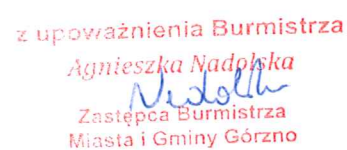 z upoważnienia Burmistrza
Agnieszka Nadolska
Zastępca Burmistrza
Miasta i Gminy Górzno